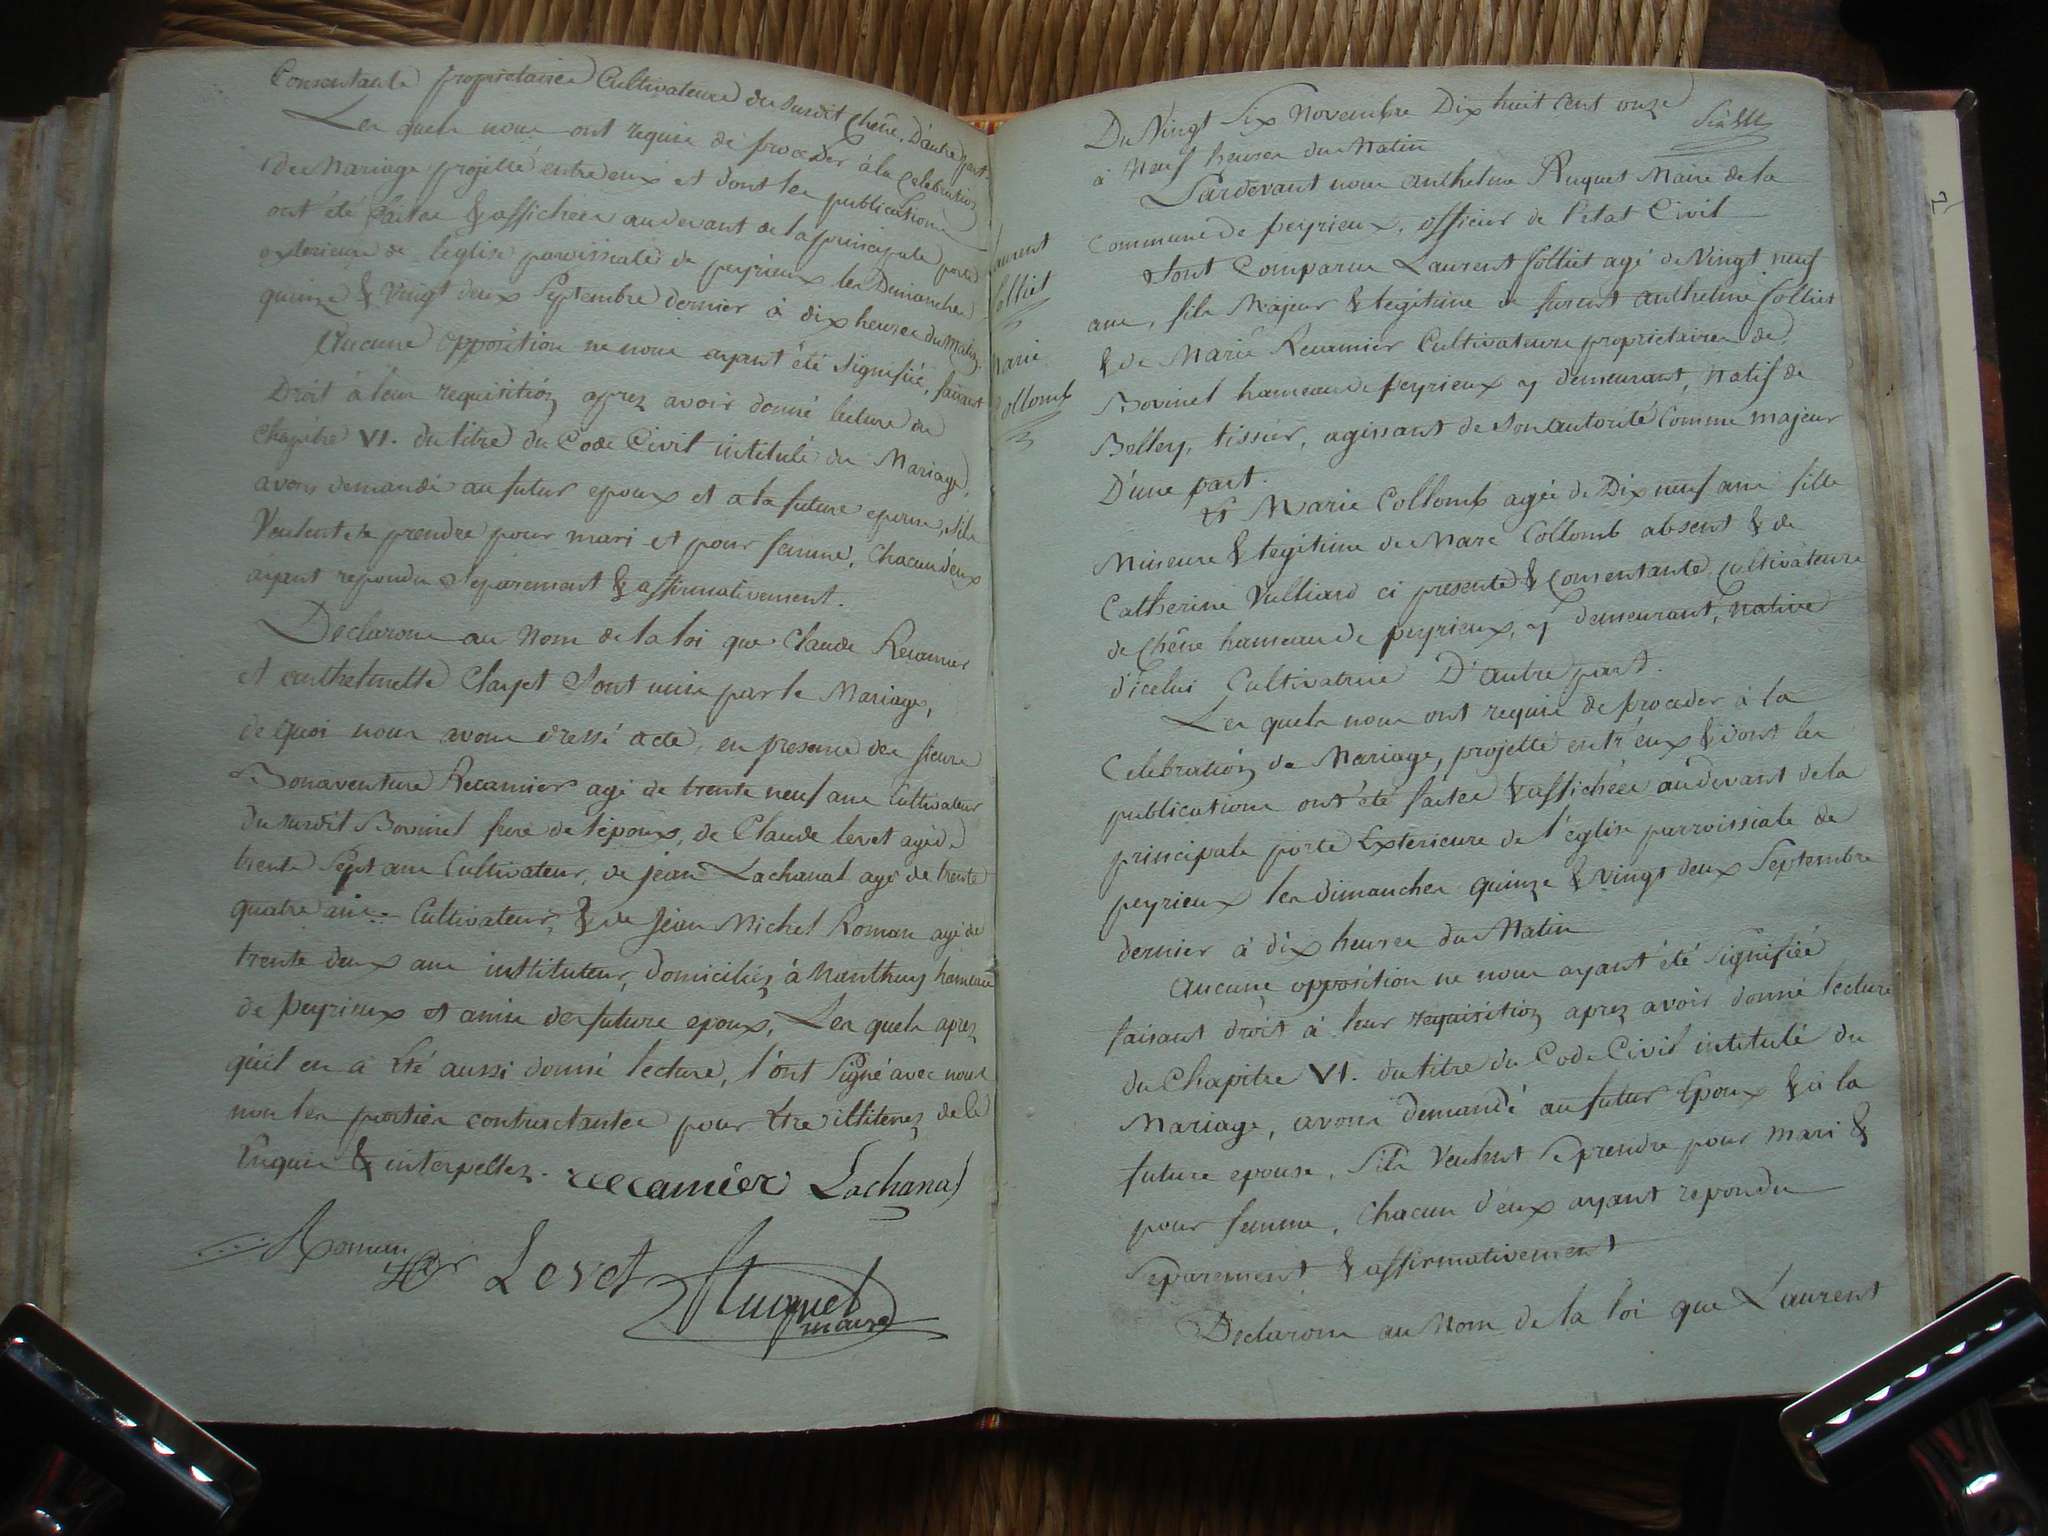 Consentante propriétaires Cultivateurs du susdit Chêne. D'autre part.
Les quels nous ont requis de proceder à la Celebration
de Mariage projetté entre eux et dont les publications
ont été faites & affichées au devant de la principale porte
exterieure de l'eglise paroissiale de peyrieux les Dimanches
quinze & Vingt deux Septembre dernier à dix heures du Matin.
Aucune opposition ne nous ayant été signifiée, faisant
Droit à leur requisition après avoir donné lecture du
chapitre VI. du titre du Code Civil intitulé du Mariage,
avons demandé au futur epoux et a la future epouse, s'ils
Veulent se prendre pour mari et pour femme, chacun d'eux
ayant repondu Separement & affirmativement.
Declarons au Nom de la loi que Claude Recamier
et anthelmette Clayet sont unis par le Mariage,
de quoi nous avons dressé acte, en presence des sieurs
Bonaventure Recamier agé de trente neuf ans Cultivateur
du susdit Bovinel frere de l'époux, de Claude levet agé de
trente Sept ans Cultivateur, de jean Lachanal agé de trente
quatre ans Cultivateur, & de Jean Michel Roman agé de
trente deux ans instituteur, domiciliés à Nanthuy hameau
de peyrieux et amis des futurs epoux, Les quels après
qu'il en a été aussi donné lecture, l'ont Signé avec nous
non les parties contractantes pour être illiterés de ce
Enquis & interpellés. reccamiér Lachanal
Roman Levet Huguet
maire
Laurent
folliet
Marie
Collomb
Du Vingt Six Novembre Dix huit cent onze
à Neuf heures du Matin
Pardevant nous anthelme Huguet Maire de la
Commune de peyrieux, officier de l'etat Civil
Sont Comparus Laurent folliet agé de Vingt neuf
ans, fils Majeur & legitime de anthelme folliet
& de Marie Recamier Cultivateurs proprietaires de
Bovinel hameau de peyrieux y demeurant, Natif de
Belley, tissier, agissant de Son autorité Comme majeur
D'une part.
Et Marie Collomb agée de Dix neuf ans fille
Mineure & legitime de Marc Collomb absent & de
Catherine Vulliard ci presente & Consentante cultivateurs
de Chêne hameau de peyrieux, y demeurant, native
d'icelui Cultivatrice D'autre part.
Les quels nous ont requis de proceder à la
Celebration de Mariage, projetté entr'eux & dont les
publications ont été faites & affichées au devant de la
principale porte Exterieure de l'eglise parroissiale de
peyrieux les dimanches quinze & vingt deux Septembre
dernier à dix heures du Matin
Aucune opposition ne nous ayant été signifiée
faisant droit à leur requisition après avoir donné lecture
du Chapitre VI. du titre du Code Civil intitulé du
Mariage, avons demandé au futur Epoux & à la
future epouse, S'ils Veulent se prendre pour mari &
pour femme, chacun d'eux ayant repondu
Separement & affirmativement
Declarons au Nom de la loi que Laurent